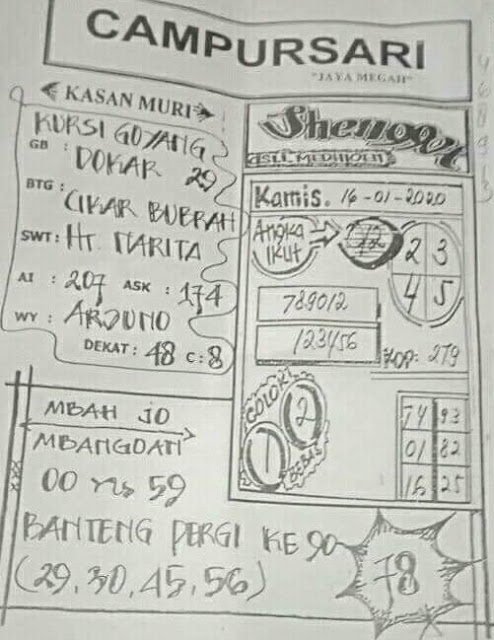 CAMPURSARI
"JAYA MEGAH"
KASAN MURI
KURSI GOYANG
GB : DOKAR 29
BTG : CIKAR BUBRAH
SWT : HT. MARITA
AI : 207 ASK : 174
WY : ARJUNO
DEKAT : 48 C : 8
Kamis. 16-01-2020
Angka
Ikut
12
2 3
4 5
789012
123456
KOP: 279
COLOK
1 2
BEBAS
74 93
01 82
16 25
MBAH JO
MBANGDATI
00 rs 59
BANTENG PERGI KE 90
(29, 30, 45, 56)
78